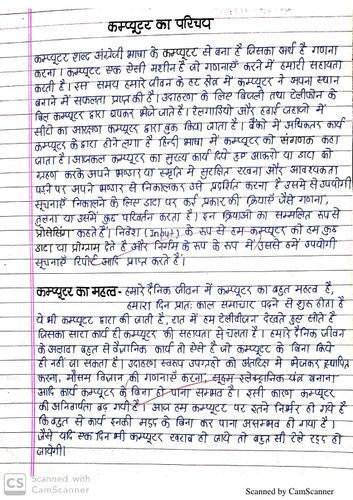 कम्प्यूटर का परिचय
कम्प्यूटर शब्द अंग्रेजी भाषा के कम्प्यूटर से बना है जिसका अर्थ है गणना
करना। कम्प्यूटर एक ऐसी मशीन है जो गणनाएँ करने में हमारी सहायता
करती है। इस समय हमारे जीवन के हर क्षेत्र में कम्प्यूटर ने अपना स्थान
बनाने में सफलता प्राप्त की है। उदाहरण के लिए बिजली तथा टेलीफोन के
बिल कम्प्यूटर द्वारा छापकर भेजे जाते हैं। रेलगाड़ियों और हवाई जहाजों में
सीटों का आरक्षण कम्प्यूटर द्वारा बुक किया जाता है। बैंकों में अधिकतर कार्य
कम्प्यूटर के द्वारा होने लगा है हिन्दी भाषा में कम्प्यूटर को संगणक कहा
जाता है। आजकल कम्प्यूटर का मुख्य कार्य दिये हुए आकड़ो या डाटा को
ग्रहण करके अपने भण्डार या स्मृति में सुरक्षित रखना और आवश्यकता
पड़ने पर अपने भण्डार से निकालकर उसे प्रदर्शित करना है उसमे से उपयोगी
सूचनाएँ निकालने के लिए डाटा पर कई प्रकार की क्रियाएँ जैसे गणना,
तुलना या उसमें कुछ परिवर्तन करता है। इन क्रियाओं का सम्मलित रूप से
प्रोसेसिंग कहते हैं। निवेश (Input) के रूप से हम कम्प्यूटर को हम कुछ
डाटा या प्रोग्राम देते है और निर्गम के रूप के रूप में उससे हमें उपयोगी
सूचनाएँ रिपोर्ट आदि प्राप्त करते हैं।
कम्प्यूटर का महत्व - हमारे दैनिक जीवन में कम्प्यूटर का बहुत महत्व है,
हमारा दिन प्रातः काल समाचार पढ़ने से शुरू होता है
वे भी कम्प्यूटर द्वारा की जाती है, रात में हम टेलीवीजन देखते हुए सोते है
जिसका सारा कार्य ही कम्प्यूटर की सहायता से चलता है। हमारे दैनिक जीवन
के अलावा बहुत से वैज्ञानिक कार्य तो ऐसे है जो कम्प्यूटर के बिना किये
ही नही जा सकता है। उदाहरण स्वरूप उपग्रहों को अंतरिक्ष में भेजकर स्थापित
करना, मौसम विज्ञान की गणनाएँ करना, सूक्ष्म इलेक्ट्रानिक यंत्र बनाना
आदि कार्य कम्प्यूटर के बिना हो पाना सम्भव है। इसी कारण कम्प्यूटर
की अनिवार्यता बढ़ गयी है। आज हम कम्प्यूटर पर इतने निर्भर हो गये है
कि बहुत से कार्य इनकी मदद के बिना कर पाना असम्भव हो गया है।
जैसे यदि एक दिन भी कम्प्यूटर खराब हो जाये तो बहुत सी रेले रद्द हो
जायेगी।
CS Scanned with CamScanner
Scanned by CamScanner